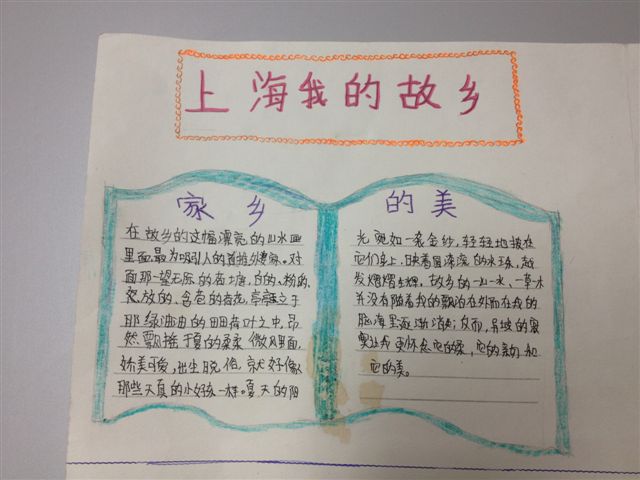 上海我的故乡
家乡
在故乡的这幅漂亮的山水画
里面最为吸引人的
面那一望无际的荷塘，白的、粉的、
怒放的、含苞的荷花，亭亭立于
那绿油油的田田荷叶之中，昂
然飘摇于夏的柔柔微风里面，
娇美可爱，出生脱俗，就好像
那些天真的小孩一样。夏天的阳
的美
光宛如一袭金纱，轻轻地披在
它们身上，映着圆滚滚的水珠，越
发熠熠生辉。故乡的一山一水、一草一木
并没有随着我的飘泊在外而在我的
脑海里逐渐消失；反而，异域的
让我更怀念它的柔，它的亲切和
它的美。